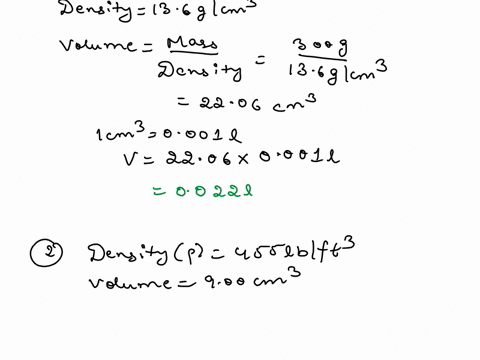 Density = 13.6 g/cm³
Volume = Mass / Density = 300g / 13.6 g/cm³
= 22.06 cm³
1cm³ = 0.001l
V = 22.06 × 0.001l
= 0.022l
② Density (ρ) = 455 lb/ft³
Volume = 9.00 cm³